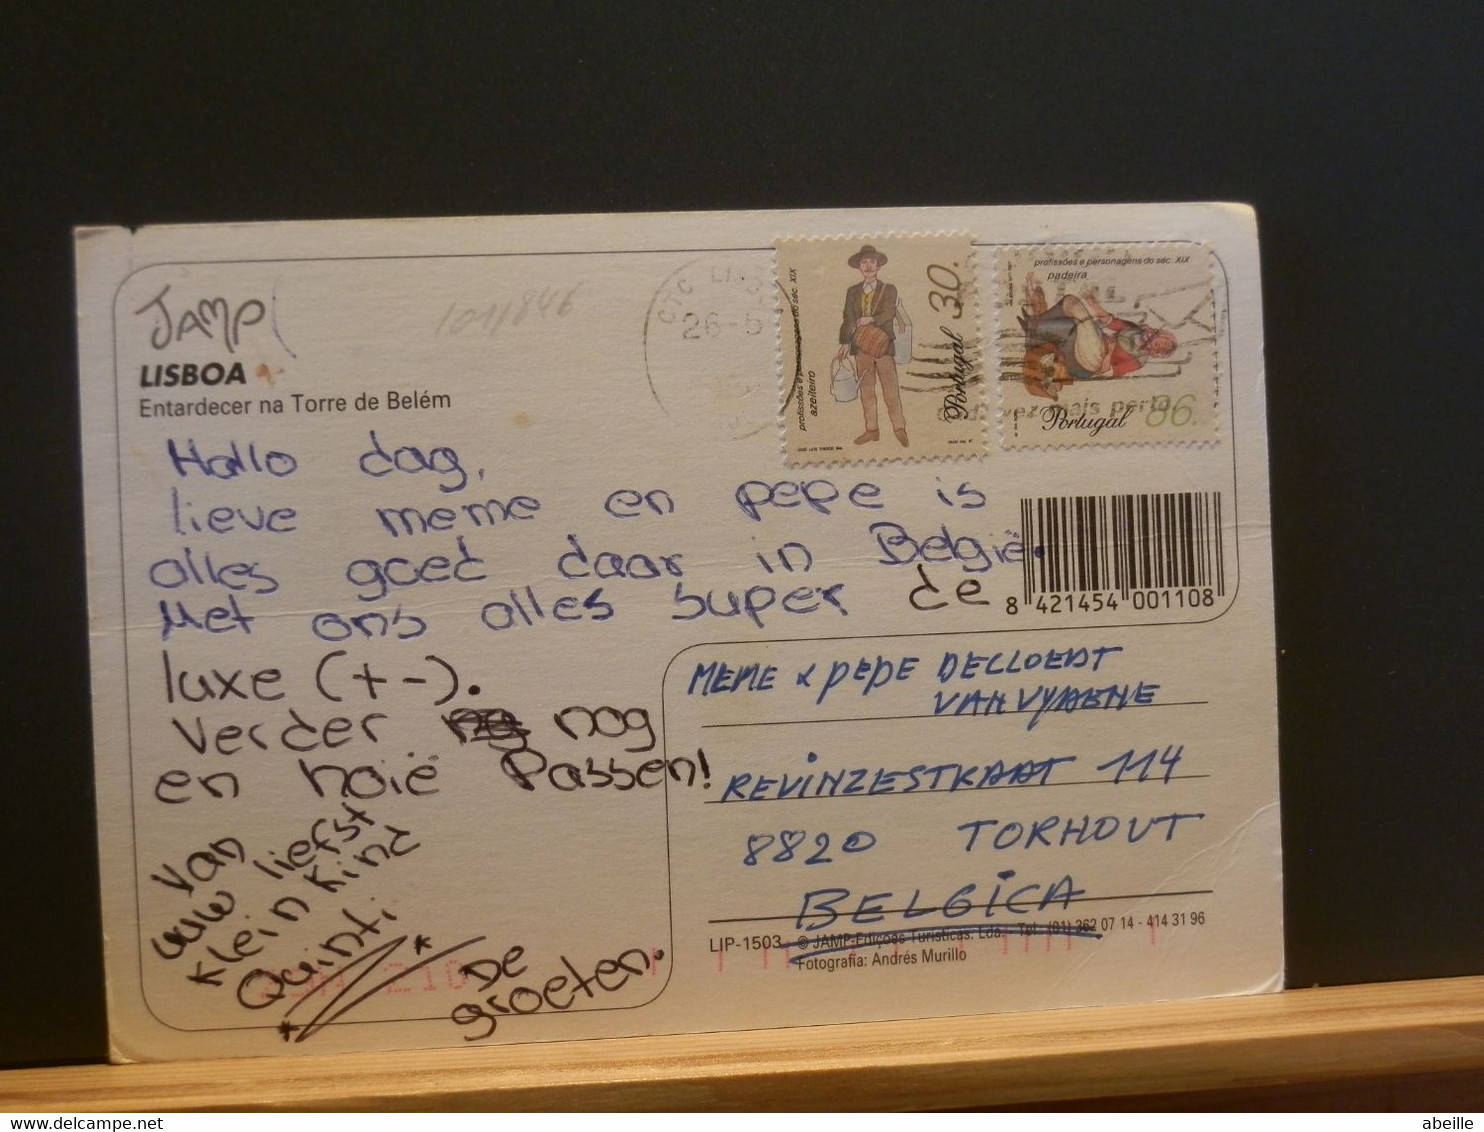 JAMP
101/846
LISBOA
Entardecer na Torre de Belém
CTC LISB
26-5
profissões e personagens do séc. XIX
azeiteiro
30.
Portugal
profissões e personagens do séc. XIX
padeira
Portugal
86.
vez mais perto
Hallo dag,
lieve meme en pepe is
alles goed daar in België.
Met ons alles super de
luxe (+-).
Verder nog
en hoië Passen!
Van
uuw liefst
klein kind
Quinti
De
groeten.
8 421454 001108
MEME & PEPE DECLOEDT
VANVYAENE
REVINZESTRAAT 114
8820 TORHOUT
BELGICA
LIP-1503 © JAMP-Edições Turísticas, Lda. Tel. (01) 362 07 14 - 414 31 96
Fotografia: Andrés Murillo
abeille